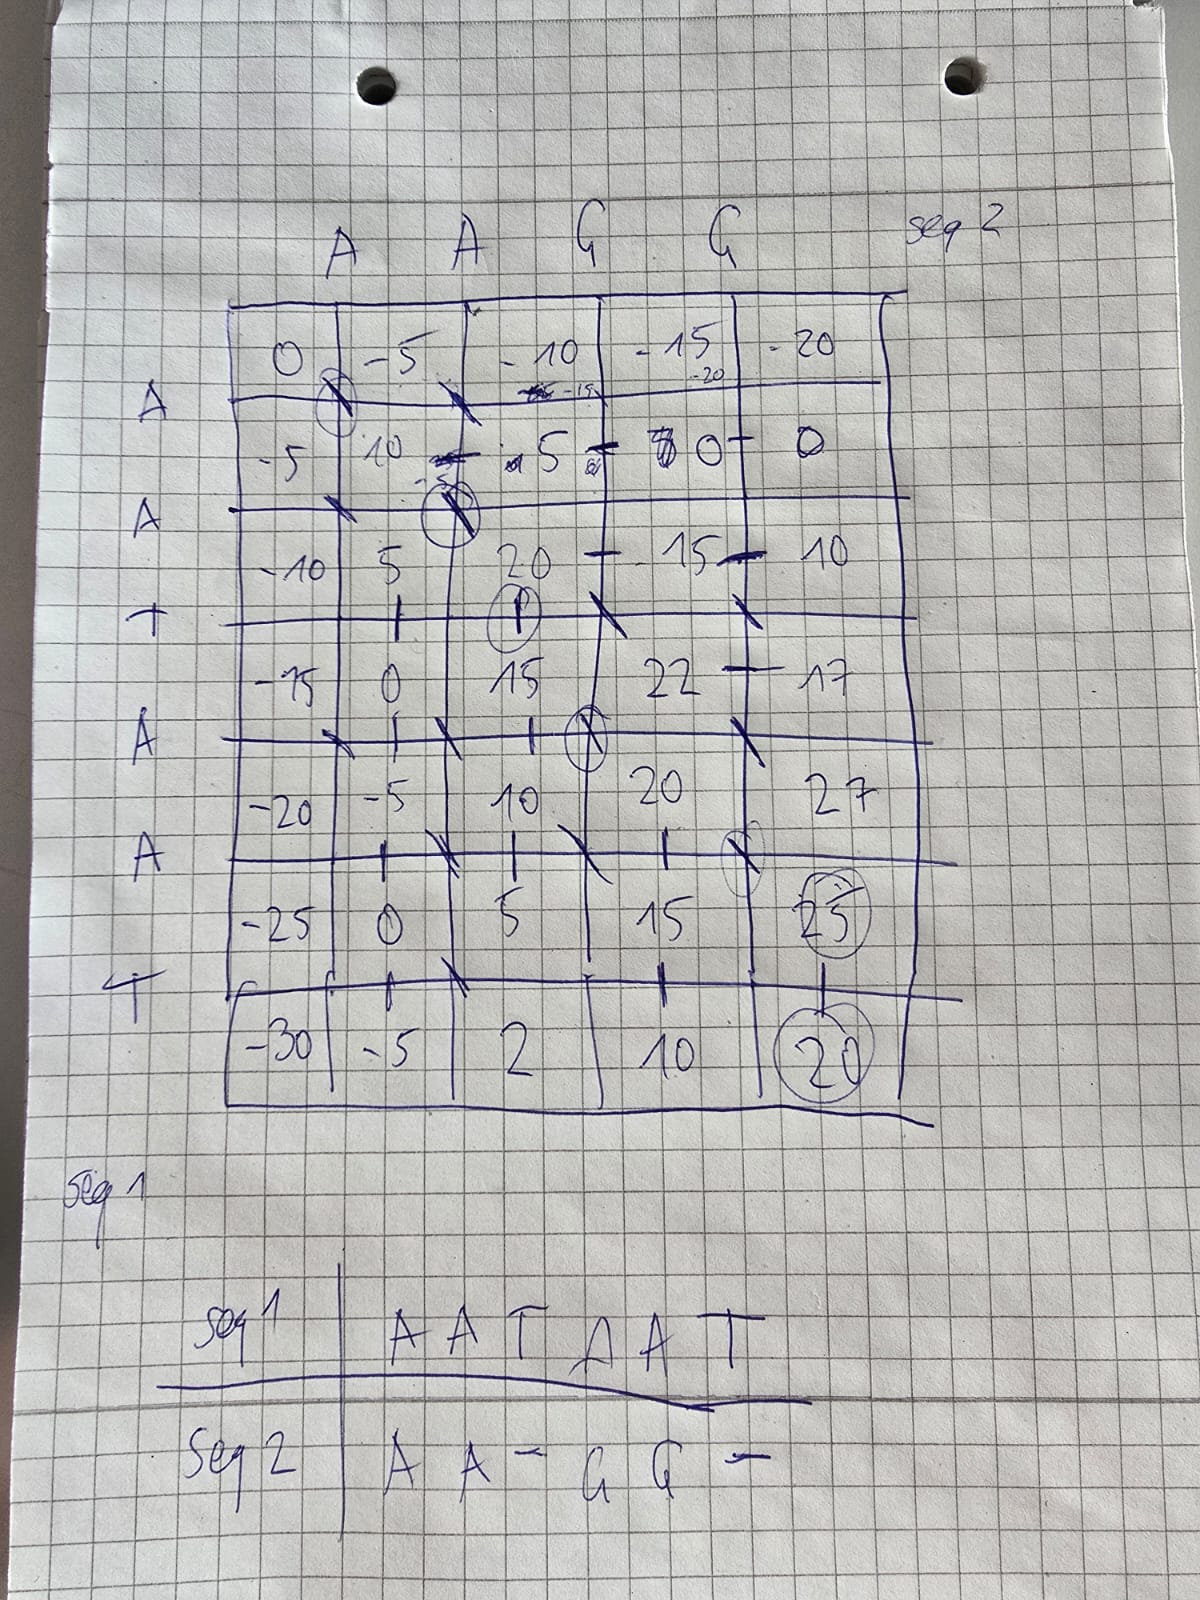 A A G G seq 2
0 -5 -10 -15 -20
-15 -20
A
-5 10 5 0 0
-5
A
-10 5 20 15 10
T
-15 0 15 22 17
A
-20 -5 10 20 27
A
-25 0 5 15 25
T
-30 -5 2 10 20
seq 1
seq 1 A A T A A T
Seq 2 A A - G G -